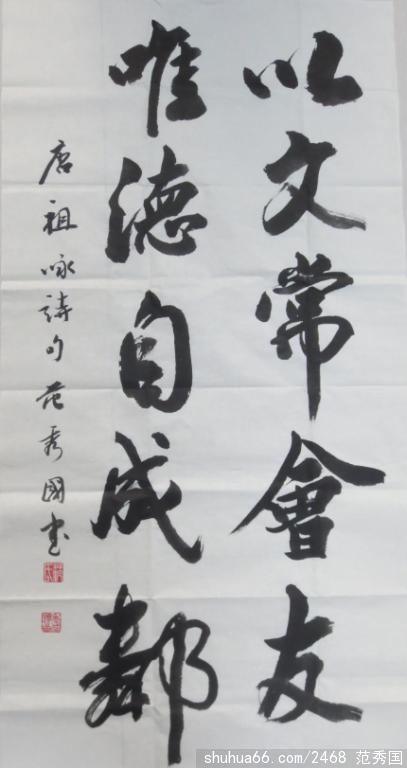 以文常會友
唯德自成鄰
唐祖咏詩句 范秀國书
shuhua66.com/2468 范秀国